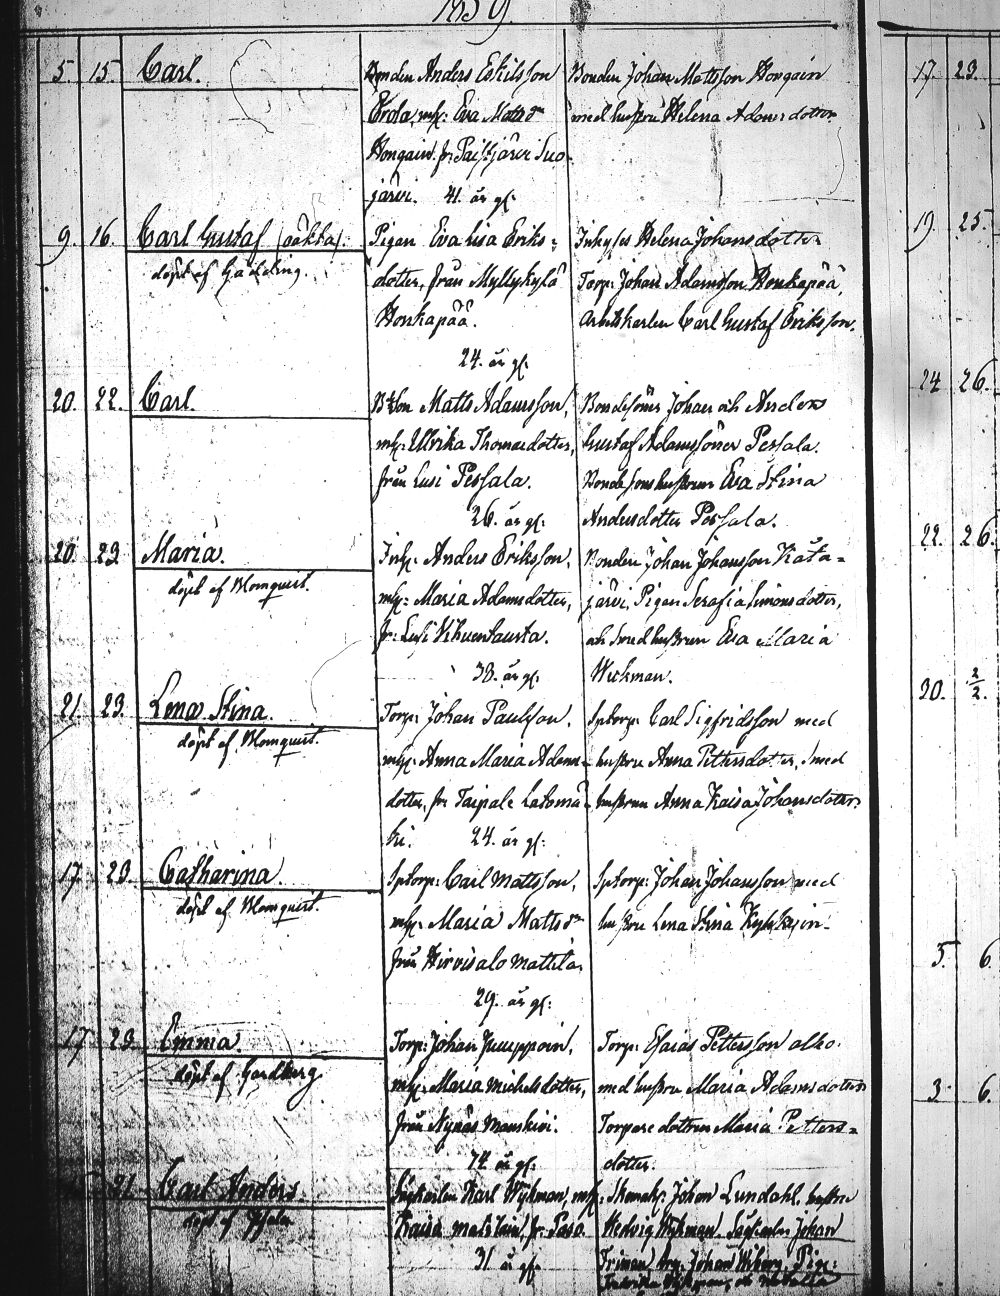 1859.
5 15. Carl.
Bonden Anders Eskilsson
Erola, mh: Eva Mattsdr
Hongain. fr. Paistjärvi Suo-
järvi. 41. år gl:
Bonden Johan Mattsson Hongain
med hustru Helena Adamsdotter
9. 16. Carl Gustaf (oäkta).
döpt af
Pigan Eva Lisa Eriks-
dotter, från Myllykylä
Honkapää.
24. år gl:
Inhyses Helena Johansdotter
Torp: Johan Adamsson Honkapää,
Arbetskarlen Carl Gustaf Eriksson.
20. 22. Carl.
Matts Adamsson,
mh: Ulrika Thomasdotter,
från Lusi Pessala.
26. år gl:
Bondesöner Johan och Anders
Gustaf Adamssöner Pessala.
Bondesonshustrun Eva Stina
Andersdotter Pessala.
20 23. Maria.
döpt af Blomquist.
Inh: Anders Eriksson,
mh: Maria Adamsdotter,
fr: Lusi Vihuenlausta.
30. år gl:
Bonden Johan Johansson Kata-
järvi, Pigan Serafia Simonsdotter,
och Smedhustrun Eva Maria
Wickman.
21. 23. Lena Stina.
döpt af Blomquist.
Torp: Johan Paulsson,
mh: Anna Maria Adams-
dotter, fr Taipale Latomä-
ki. 24. år gl:
Sptorp: Carl Sigfridsson med
hustru Anna Pettersdotter, smed
hustrun Anna Kaisa Johansdotter
17. 23. Catharina.
döpt af Blomquist.
Sptorp: Carl Mattsson,
mh: Maria Mattsdr
från Hirvisalo Mattila.
29. år gl:
Sptorp: Johan Johansson med
hustru Lena Stina
17 23. Emma.
döpt af Gardberg
Torp: Johan Juuppoin,
mh: Maria Michelsdotter,
från Nynäs Manskivi.
år gl:
Torp: Esaias Pettersson
med hustru Maria Adamsdotter
Torpare dottren Maria Petters-
dotter.
21. Carl Anders.
döpt af
Karl Wikman, mh:
Kaisa
31 år gl:
Johan Lundahl, hustru
Hedvig Wikman. Johan
Johan Wiberg, Pig:
17. 23.
19. 25.
24 26.
22. 26.
30. 2/2.
5. 6.
3 6.